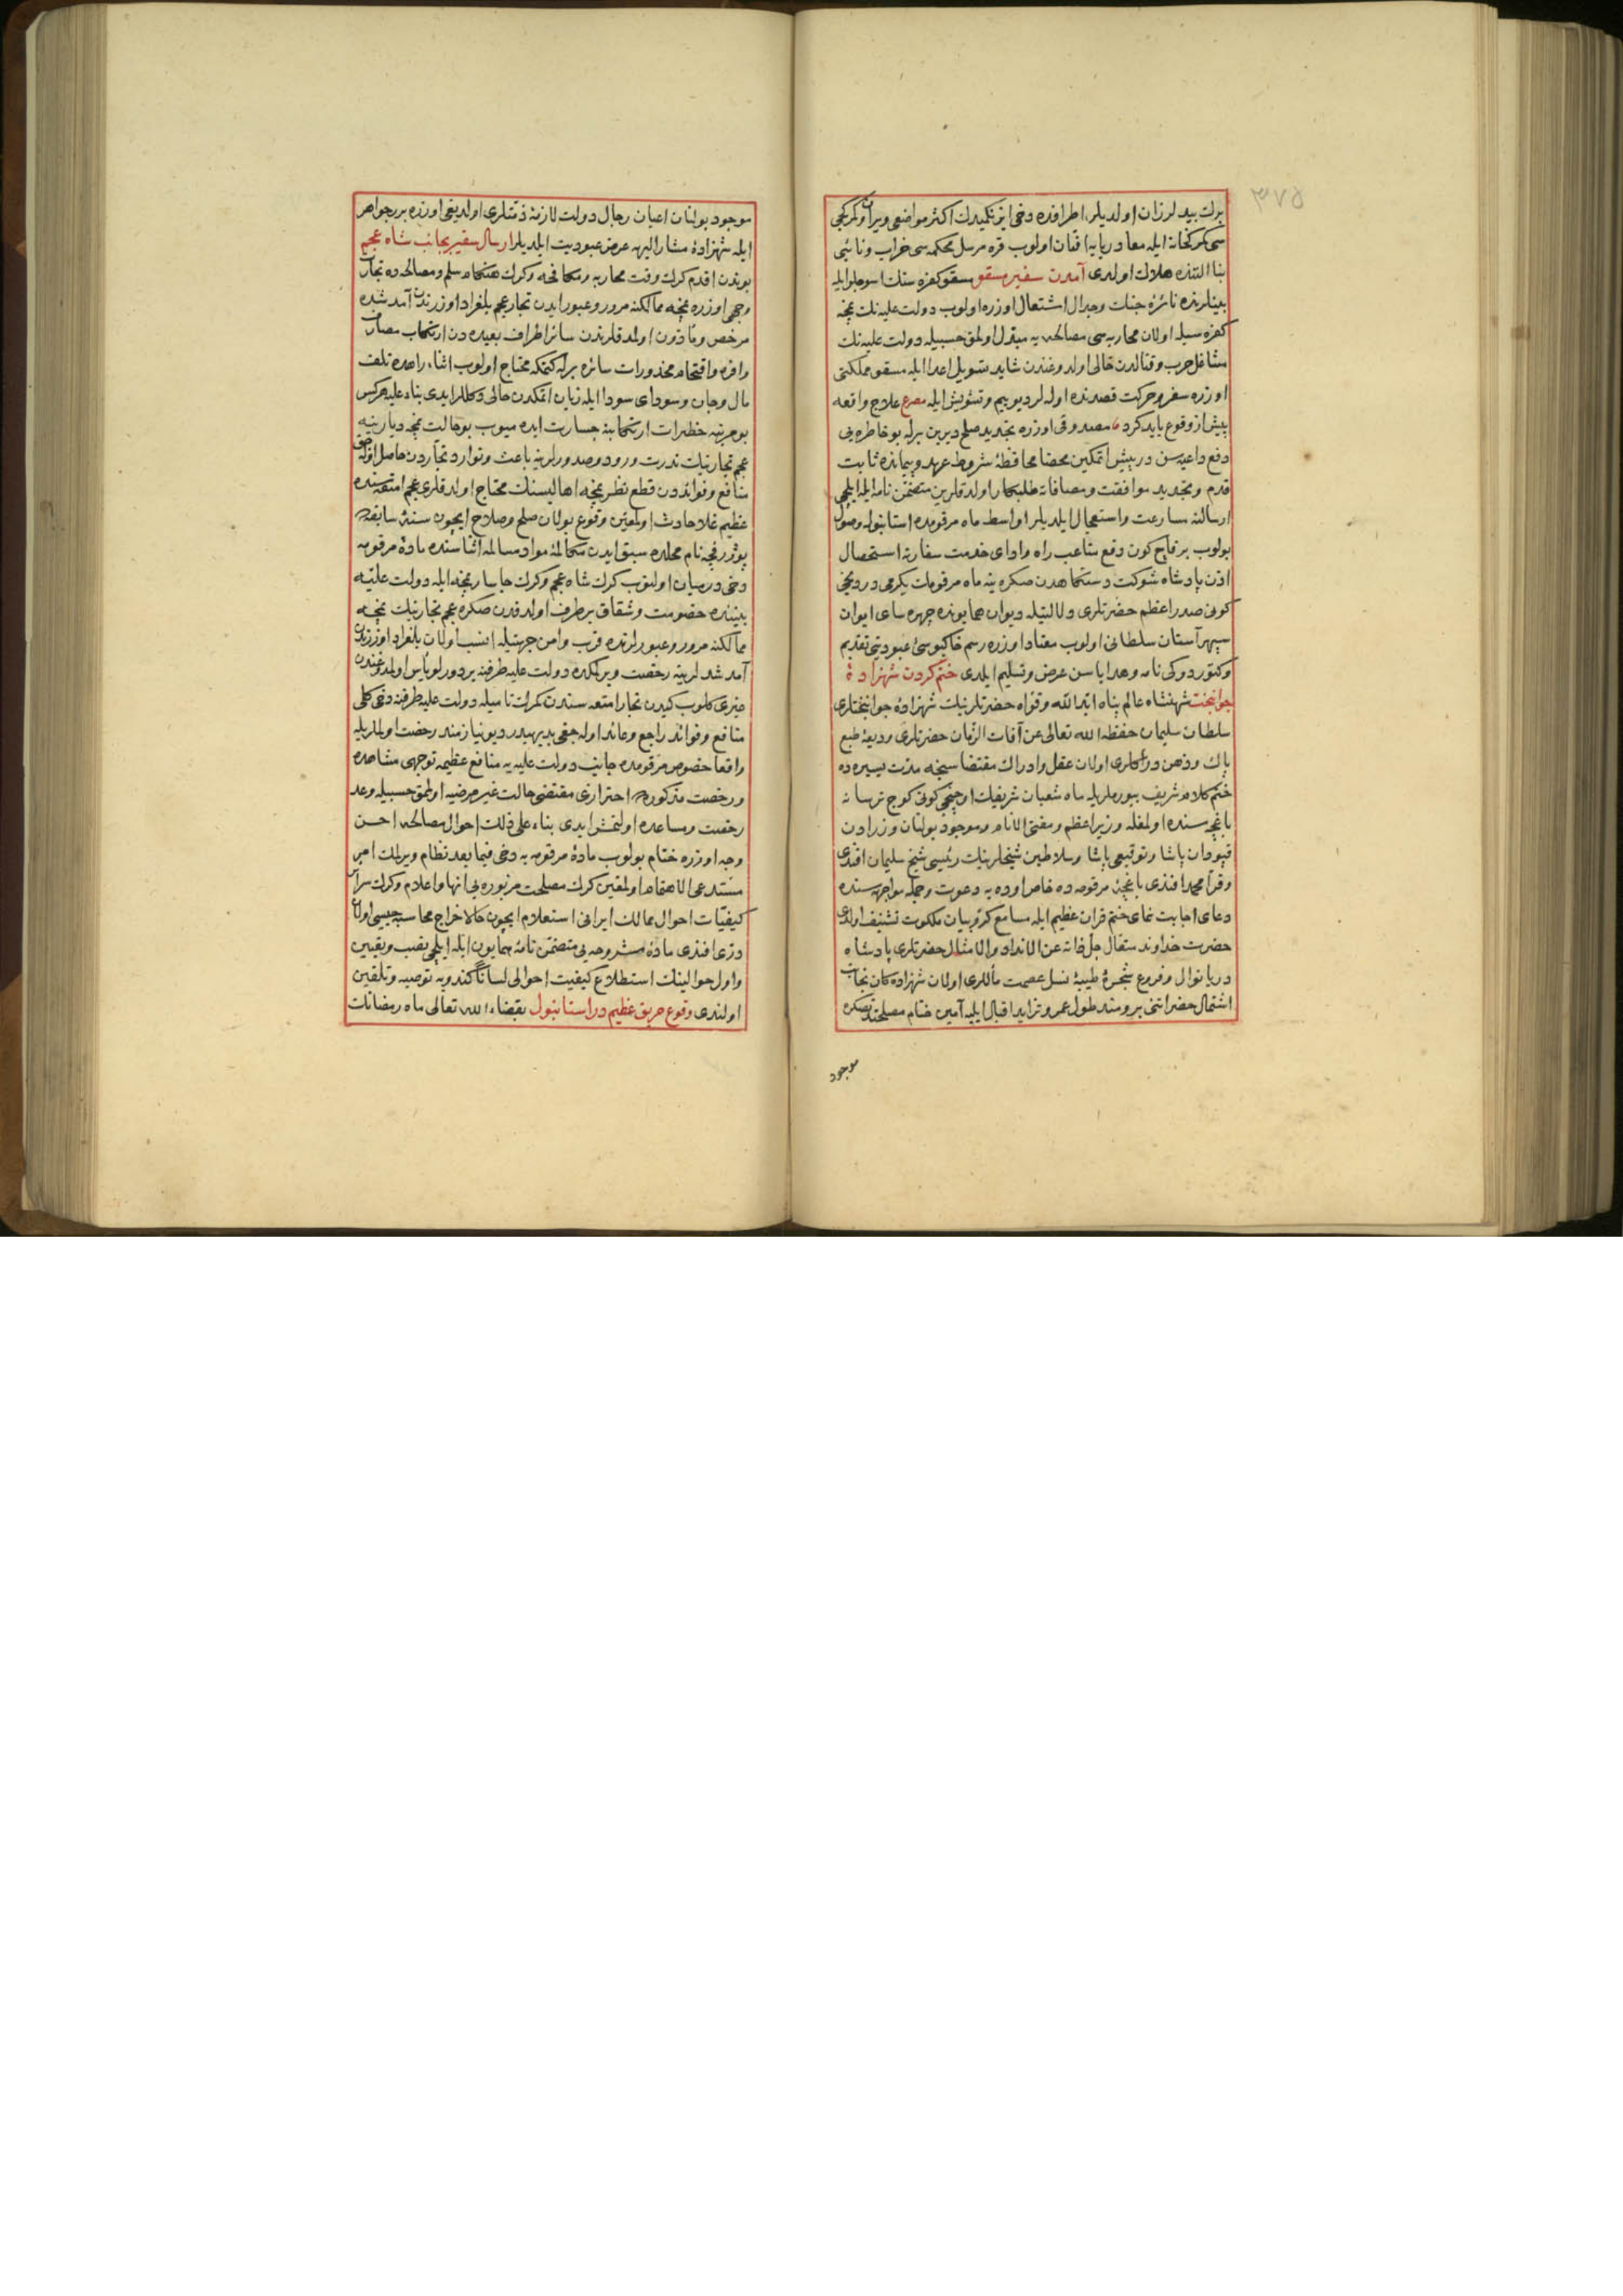 برك بيد لرزان اولديلر اطرافده دخى ازنكميدك اكثر مواضعى ويران وكمركجى
سى كمركخانه ايله معا دريايه افتان اولوب قره مرسل محكمه سى خراب ونائبى
بنا التنده هلاك اولدى آمدن سفير مسقو مسقو كفره سنك اسوجلو ايله
بينلرنده نائرهٔ جنك وجدال اشتعال اوزره اولوب دولت عليه نك نمچه
كفره سيله اولان محاربه سى مصالحه يه مبدل اولمق حسبيله دولت عليه نك
مشاغل حرب وقتالدن خالى اولدوغندن شايد تسويل اعدا ايله مسقو مملكتى
اوزره سفر وحركت قصدنده اوله لر ديو بيم وتشويش ايله مصرع علاج واقعه
پيش از وقوع بايد كرد مصدوقى اوزره تجديد صلح ديرين برله بو خاطره يى
دفع داعيه سن در پيش اتمكين محضا محافظهٔ شروط عهد وپيمانده ثابت
قدم وتجديد موافقت ومصافاته طلبكار اولدقلرين متضمن نامه ايله ايلچى
ارسالنه مسارعت واستعجال ايلديلر اواسط ماه مرقومده استانبوله وصول
بولوب بر قاچ كون دفع متاعب راه واداى خدمت سفارته استحصال
اذن پادشاه شوكت دستكاهدن صكره ينه ماه مرقومك يكرمى دردنجى
كونى صدر اعظم حضرتلرى دلالتيله ديوان همايونده چهره ساى ايوان
سپهر آستان سلطانى اولوب معتاد اوزره رسم خاكبوسئ عبوديتى تقديم
وكتوردوكى نامه وهداياسن عرض وتسليم ايلدى ختم كردن شهزادهٔ
جوانبخت شهنشاه عالم پناه ايد الله وقواه حضرتلرينك شهزادهٔ جوانبختلرى
سلطان سليمان حفظه الله تعالى عن آفات الزمان حضرتلرى وديعهٔ طبع
پاك وذهن دراكلرى اولان عقل وادراك مقتضاسنجه مدت يسيره ده
ختم كلام شريف بيورملريله ماه شعبان شريفك اوچنجى كونى كوچ ترسانه
باغچه سنده اولمغله وزير اعظم ومفتئ الانام وموجود بولنان وزرادن
قپودان پاشا وتوقيعى پاشا وسلاطين شيخلرينك رئيسى شيخ سليمان افندى
وقرا محمد افندى باغچهٔ مرقومه ده خاص اوده يه دعوت وجمله مواجهه سنده
دعاى اجابت نماى ختم قران عظيم ايله مسامع كروبيان ملكوت تشنيف اولندى
حضرت خداوند متعال جل ذاته عن الانداد والامثال حضرتلرى پادشاه
دريا نوال وفروع شجرهٔ طيبهٔ نسل عصمت مآللرى اولان شهزادكان نجابت
اشتمال حضراتنى برومند طول عمر وتزايد اقبال ايليه آمين ختام مصلحتدن صكره
موجود
موجود بولنان اعيان رجال دولت لازمهٔ ذمتلرى اولديغى اوزره برر جواهر
ايله شهزادهٔ مشار اليهه عرض عبوديت ايلديلر ارسال سفير بجانب شاه عجم
بوندن اقدم كرك وقت محاربه ومكافحه وكرك هنكام سلم ومصالحه ده تجارت
وجهى اوزره نمچه ممالكنه مرور وعبور ايدن تجار عجم بلغراد اوزرندن آمد شده
مرخص ومأذون اولمدقلرندن سائر اطراف بعيده دن ارتكاب مصارف
وافره واقتحام محذورات سائره برله كتمكه محتاج اولوب اثناء راهده تلف
مال وجان وسوداى سودا ايله زيان اتمكدن خالى دكللر ايدى بناء عليه هركس
بو مرتبه خطرات ارتكابنه جسارت ايده ميوب بو حالت نمچه ديارينه
عجم تجارينك ندرت ورود وصدورلرينه باعث وتوارد تجاردن حاصل اوله جق
منافع وفوائددن قطع نظر نمچه اهاليسنك محتاج اولدقلرى عجم امتعه سنده
عظيم غلا حادث اولمغين وقوع بولان صلح وصلاح ايچون سنهٔ سابقه ده
پوژرفچه نام محلده سبق ايدن مكالمهٔ مواد مسالمه اثناسنده مادهٔ مرقومه
دخى درميان اولنوب كرك شاه عجم وكرك چاسار نمچه ايله دولت عليه
بيننده خصومت وشقاق برطرف اولدقدن صكره عجم تجارينك نمچه
ممالكنه مرور وعبورلرنده قرب وامن جهتيله انسب اولان بلغراد اوزرندن
آمد شدلرينه رخصت ويرلمكده دولت عليه طرفنه بر دورلو باس اولمدوغندن
غيرى كلوب كيدن تجار امتعه سندن كمرك ناميله دولت عليه طرفنه دخى كلى
منافع وفوائد راجع وعائد اوله جغى بديهيدر ديو نيازمند رخصت اولملريله
واقعا خصوص مرقومده جانب دولت عليه يه منافع عظيمه توجهى مشاهده
ورخصت مذكوره احترازى مقتضى حالت غير مرضيه اولمق حسبيله وعد
رخصت ومساعده اولنمش ايدى بناء على ذلك احوال مصالحه احسن
وجه اوزره ختام بولوب مادهٔ مرقومه يه دخى فيما بعد نظام ويرلمك امر
مستدعى الاهتمام اولمغين كرك مصلحت مزبوره يى انها واعلام وكرك سرآ
كيفيات احوال ممالك ايرانى استعلام ايچون حالا خراج محاسبه جيسى اولان
درى افندى مادهٔ مشروحه يى متضمن نامهٔ همايون ايله ايلچى نصب وتعيين
واول حوالينك استطلاع كيفيت احوالى لسانا كندويه توصيه وتلقين
اولندى وقوع حريق عظيم در استانبول بقضاء الله تعالى ماه رمضانك